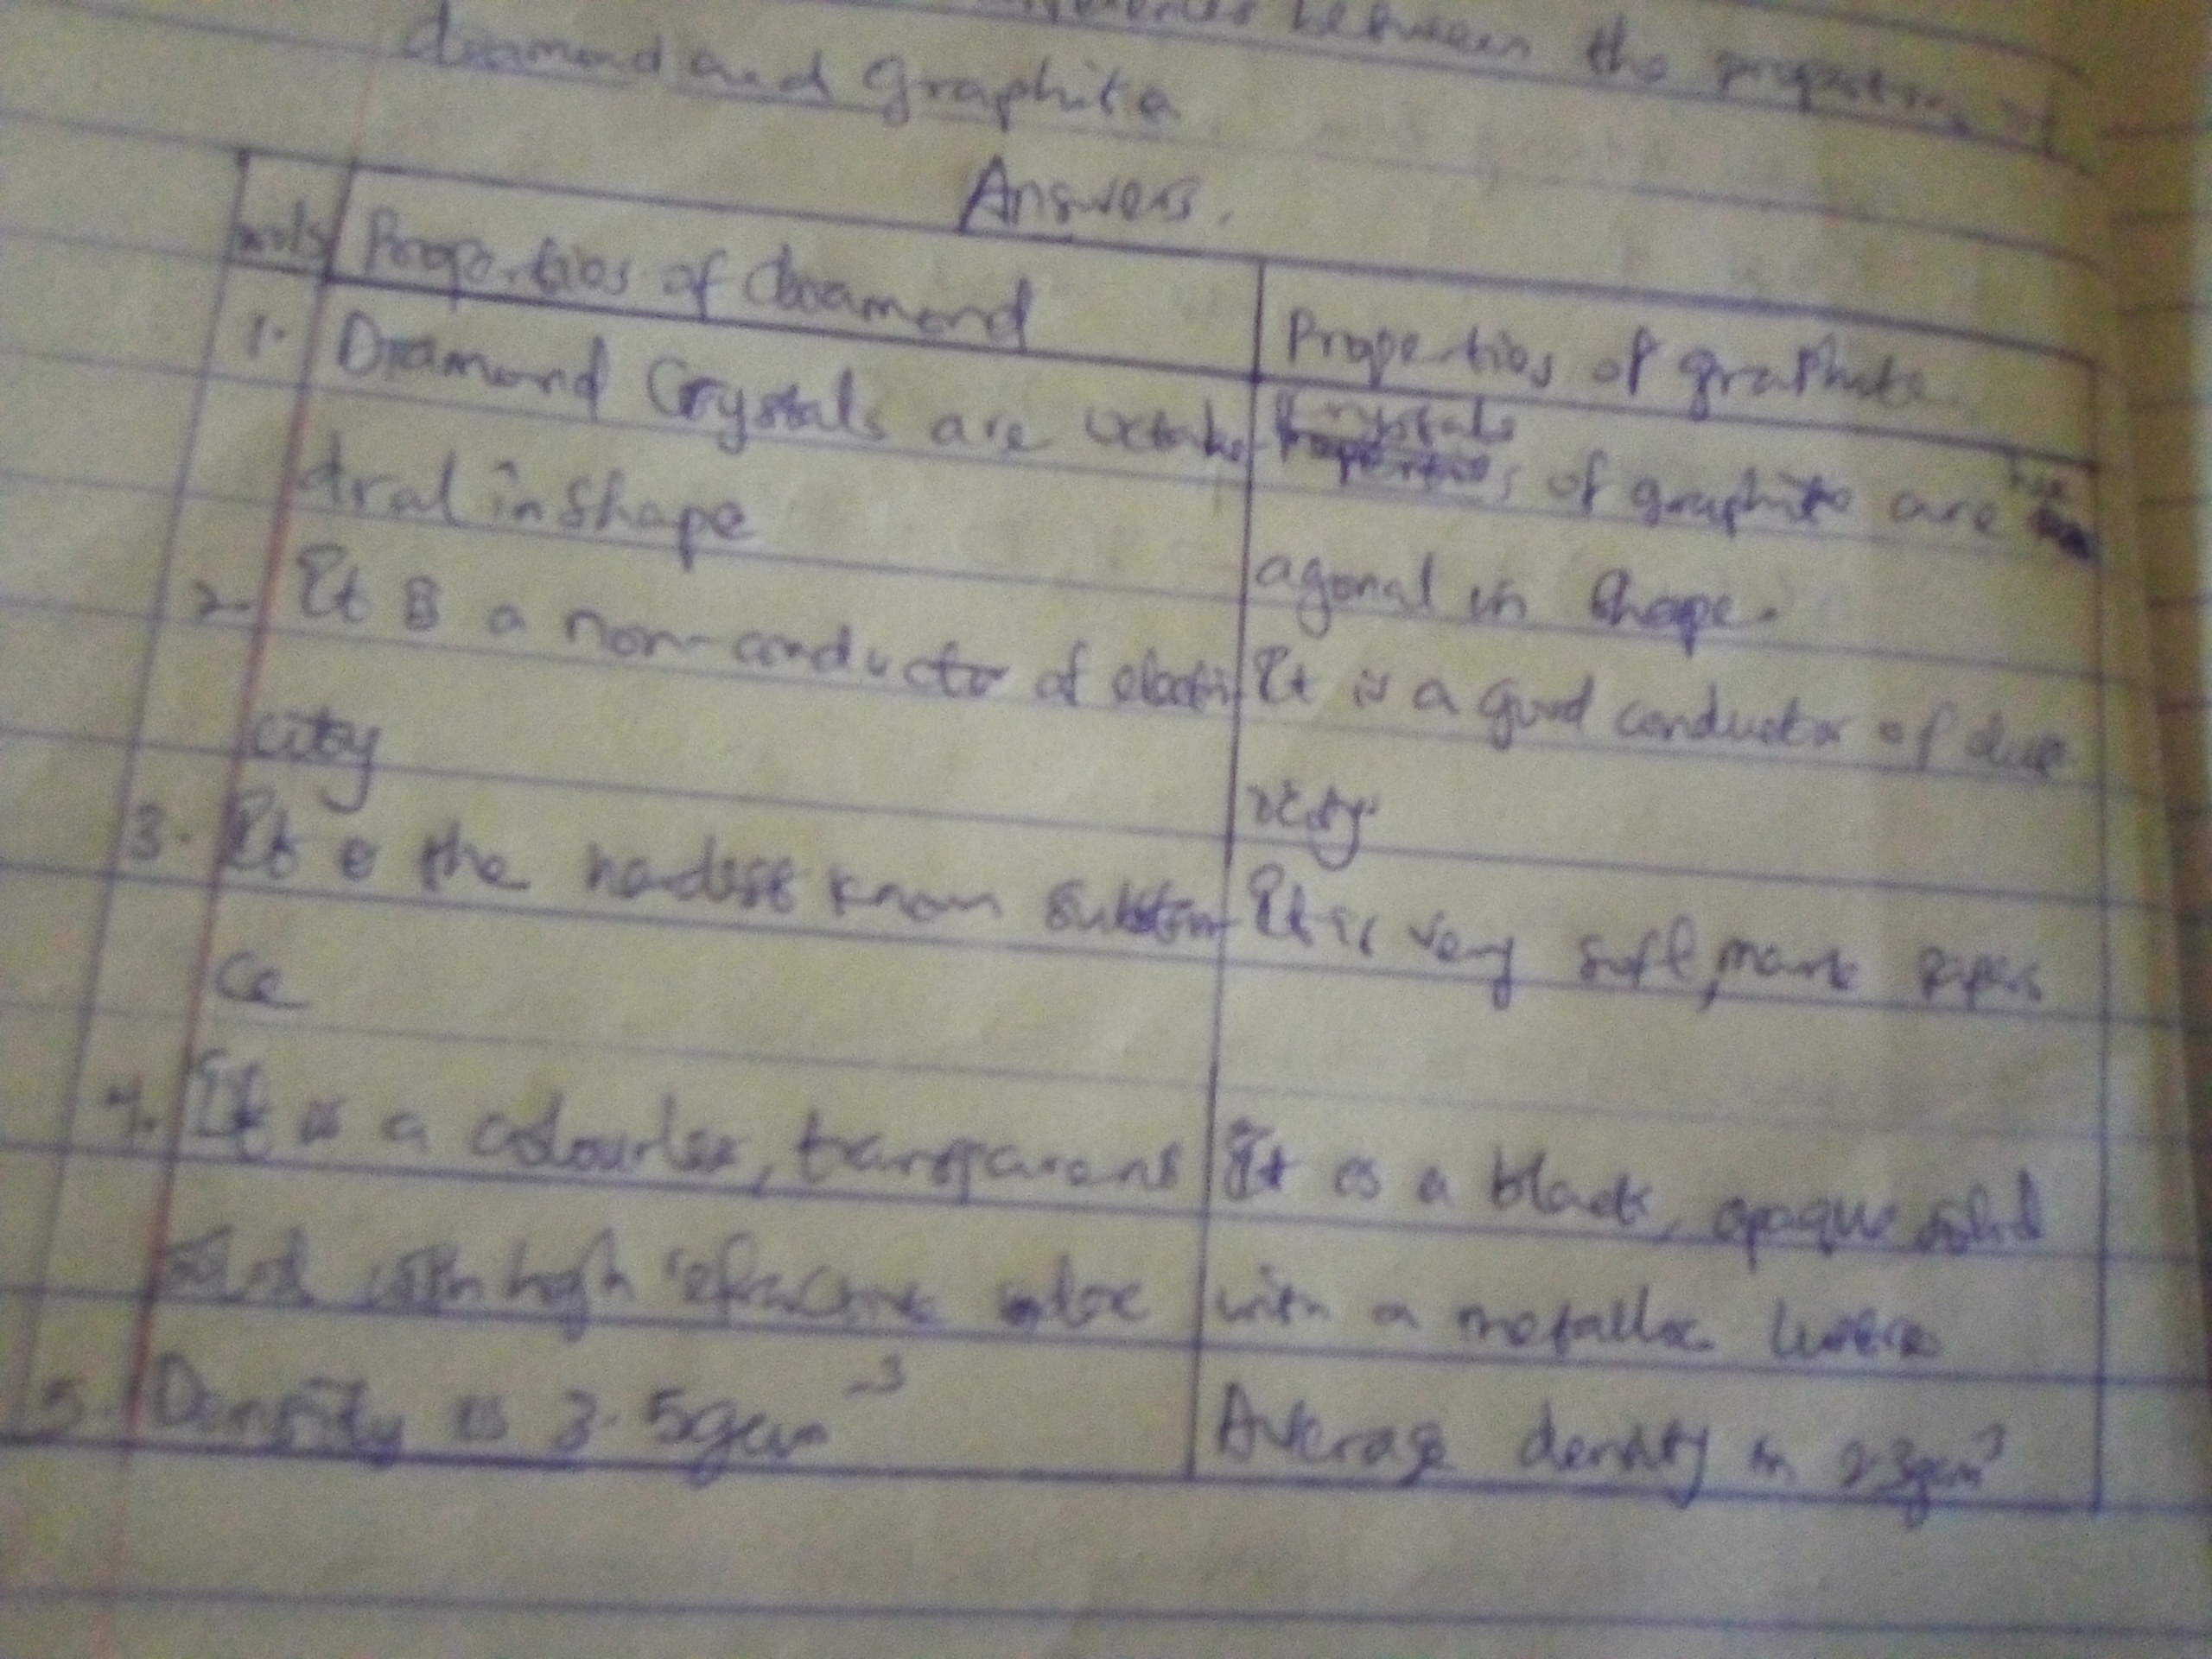 between the properties of
diamond and graphite
Answers.
Properties of diamond
Properties of graphite
1. Diamond Crystals are octahe
dral in shape
Crystals
of graphite are hex
agonal in shape.
2. It is a non-conductor of electri
city
It is a good conductor of elec
ricity.
3. It is the hardest known substan
ce
It is very soft, mark papers
4. It is a colourless, transparent
solid with high refractive index
It is a black, opaque solid
with a metallic lustre
5. Density is 3.5gcm⁻³
Average density is 2.3gcm⁻³